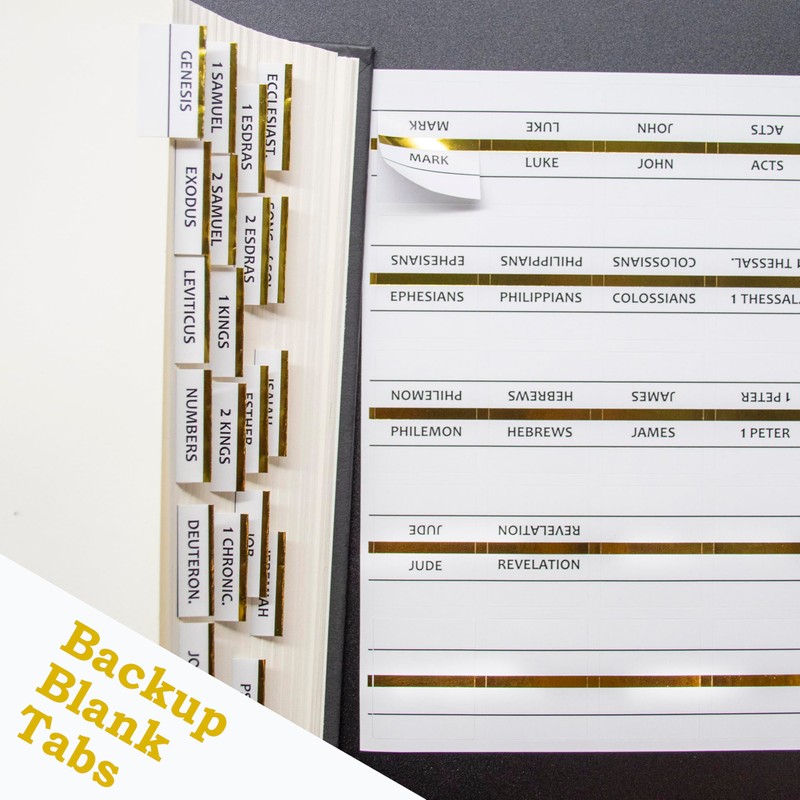 GENESIS
EXODUS
LEVITICUS
NUMBERS
DEUTERON.
JO
1 SAMUEL
2 SAMUEL
1 KINGS
2 KINGS
1 CHRONIC.
1 ESDRAS
2 ESDRAS
ESTHER
JOB
PS
ECCLESIAST.
ISAIAH
JEREMIAH
MARK LUKE JOHN ACTS
MARK LUKE JOHN ACTS
EPHESIANS PHILIPPIANS COLOSSIANS 1 THESSAL.
EPHESIANS PHILIPPIANS COLOSSIANS 1 THESSAL.
PHILEMON HEBREWS JAMES 1 PETER
PHILEMON HEBREWS JAMES 1 PETER
JUDE REVELATION
JUDE REVELATION
Backup
Blank
Tabs